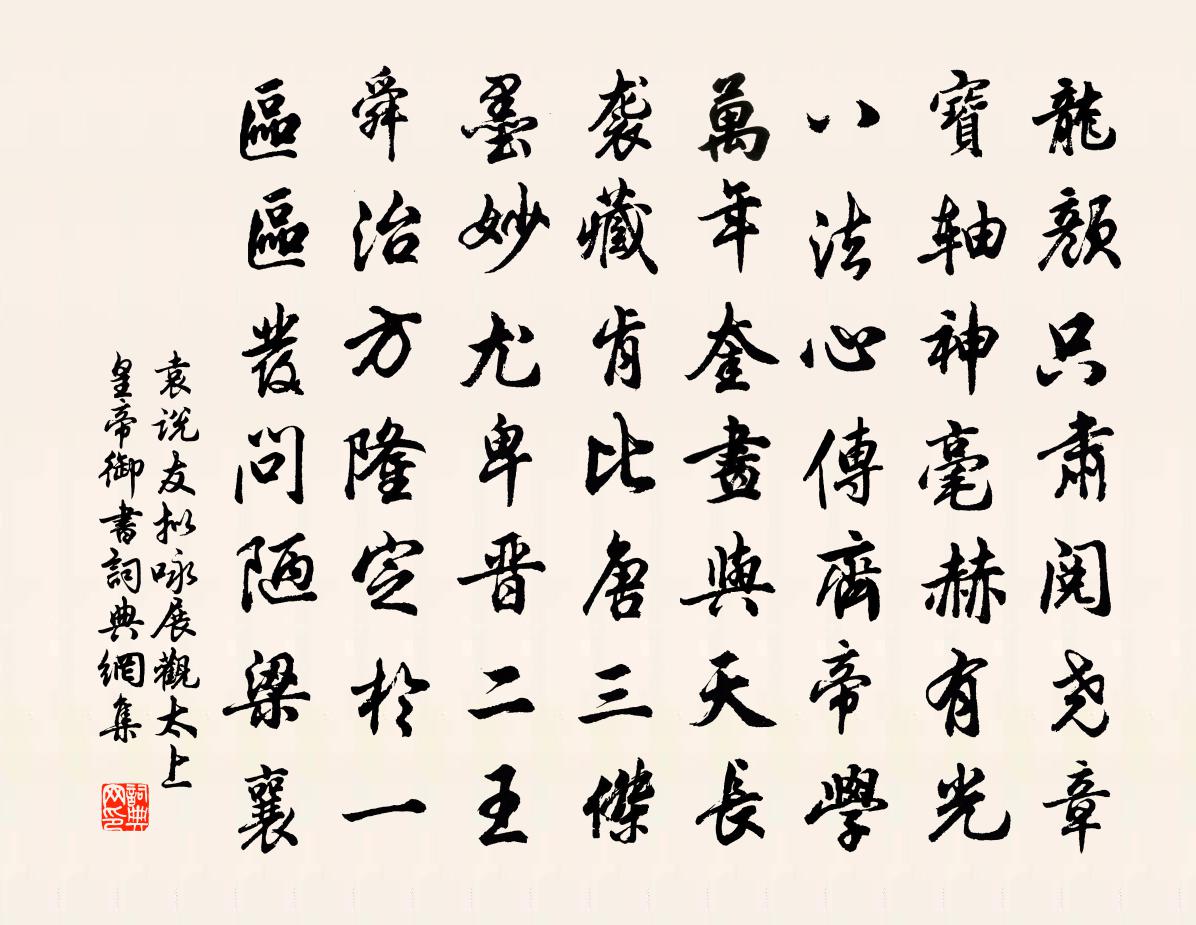 龍顏只肅閱堯章
寶軸神毫赫有光
八法心傳齊帝學
萬年奎畫與天長
袭藏肯比唐三傑
墨妙尤卑晋二王
舜治方隆定於一
區區發問陋梁襄
袁说友拟咏展觀太上
皇帝御書詞典網集
詞典
网印